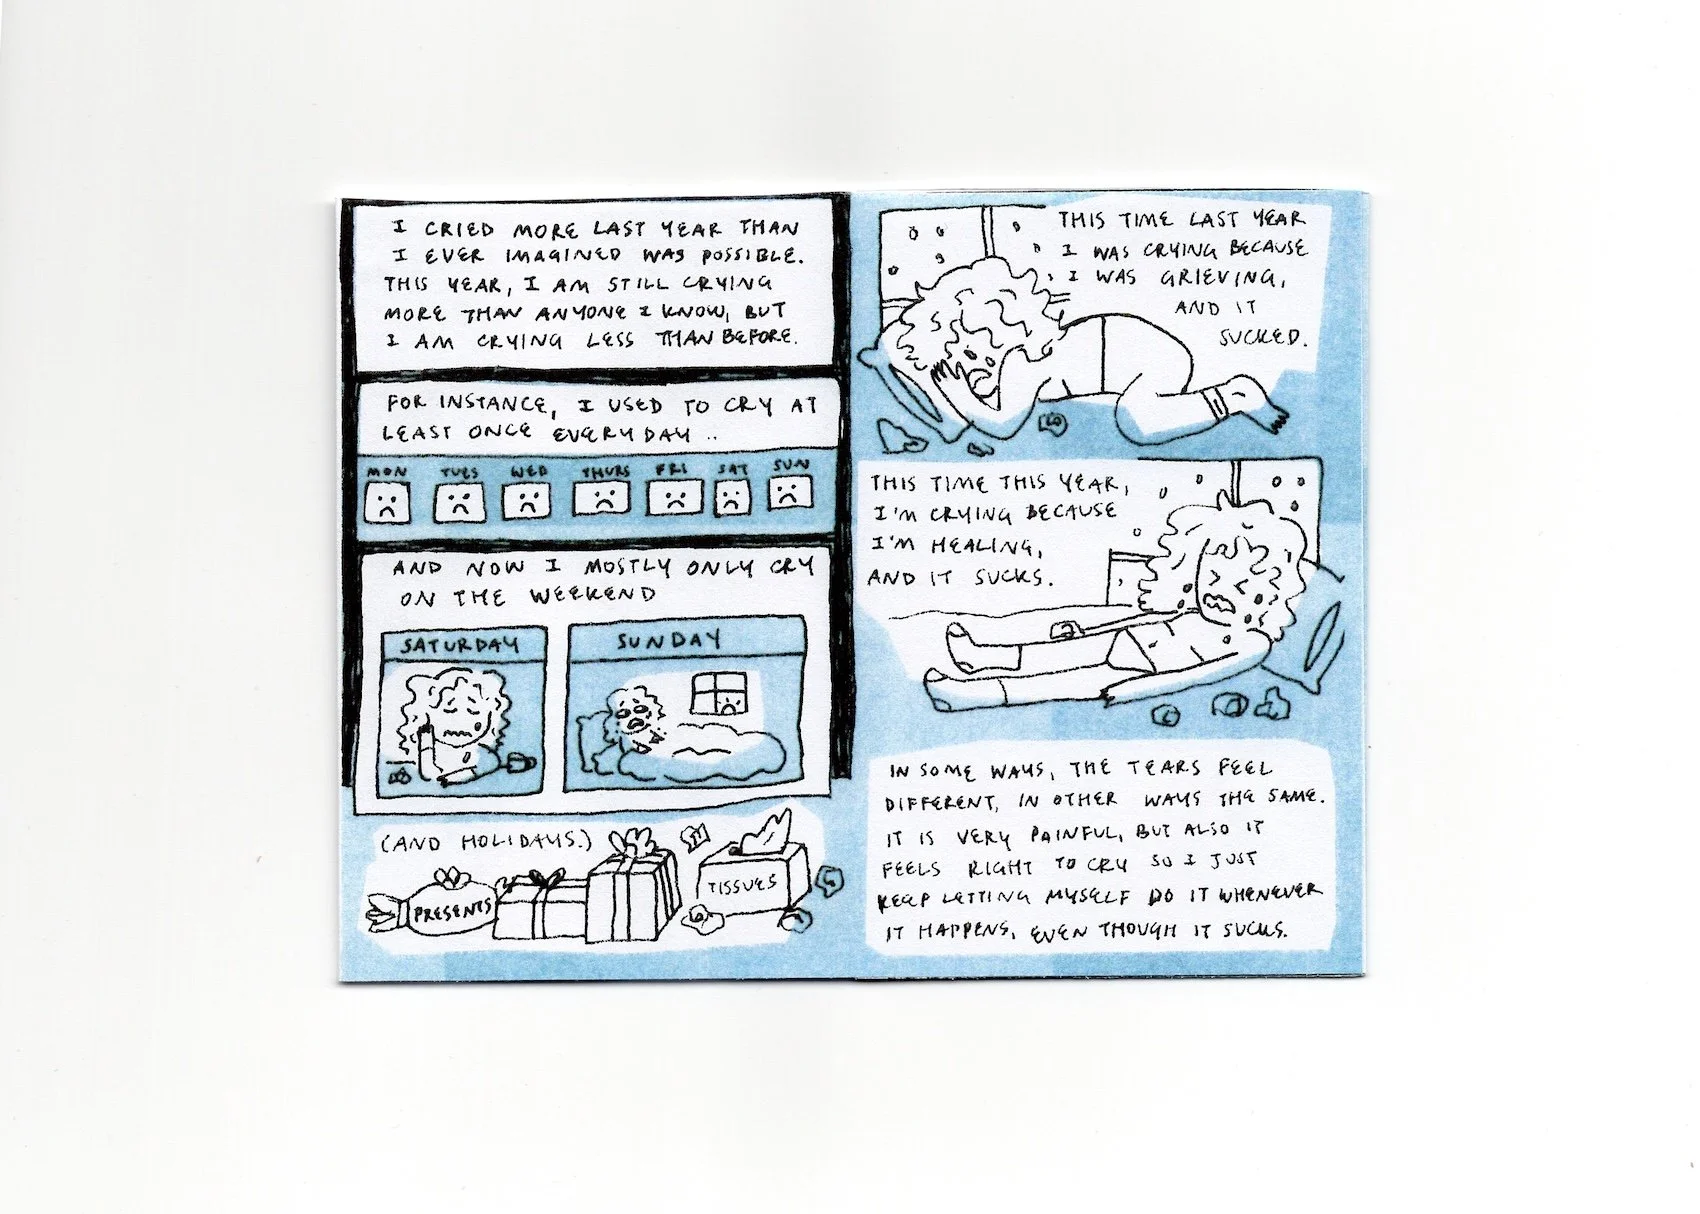 I CRIED MORE LAST YEAR THAN
I EVER IMAGINED WAS POSSIBLE.
THIS YEAR, I AM STILL CRYING
MORE THAN ANYONE I KNOW, BUT
I AM CRYING LESS THAN BEFORE.
FOR INSTANCE, I USED TO CRY AT
LEAST ONCE EVERY DAY ..
MON TUES WED THURS FRI SAT SUN
AND NOW I MOSTLY ONLY CRY
ON THE WEEKEND
SATURDAY
SUNDAY
(AND HOLIDAYS.)
PRESENTS
TISSUES
THIS TIME LAST YEAR
I WAS CRYING BECAUSE
I WAS GRIEVING,
AND IT
SUCKED.
THIS TIME THIS YEAR,
I'M CRYING BECAUSE
I'M HEALING,
AND IT SUCKS.
IN SOME WAYS, THE TEARS FEEL
DIFFERENT, IN OTHER WAYS THE SAME.
IT IS VERY PAINFUL, BUT ALSO IT
FEELS RIGHT TO CRY SO I JUST
KEEP LETTING MYSELF DO IT WHENEVER
IT HAPPENS, EVEN THOUGH IT SUCKS.